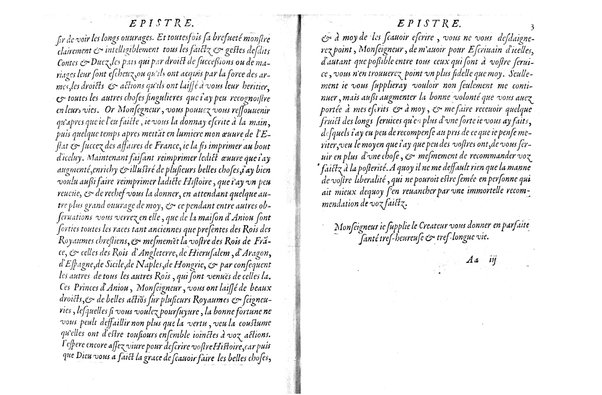 EPISTRE.
sir de voir les longs ouvrages. Et toutesfois sa brefueté monstre
clairement & intelligiblement tous les faictz & gestes desdits
Contes & Ducz, les païs qui par droict de successions ou de ma-
riages leur sont escheuz, ou qu'ils ont acquis par la force des ar-
mes, les droicts & actions qu'ils ont laissé à vous leur heritier,
& toutes les autres choses singulieres que i'ay peu recognoistre
en leurs vies. Or Monseigneur, vous pouuez vous ressouuenir
qu'apres que ie l'eu faicte, ie vous la donnay escrite à la main,
puis quelque temps apres mettãt en lumiere mon œuure de l'E-
stat & succez des affaires de France, ie la fis imprimer au bout
d'iceluy. Maintenant faisant reimprimer ledict œuure que i'ay
augmenté, enrichy & illustré de plusieurs belles choses, i'ay bien
voulu aussi faire reimprimer ladicte Histoire, que i'ay vn peu
reueüe, & de rechef vous la donner, en attendant quelque au-
tre plus grand ouurage de moy, & ce pendant entre autres ob-
seruations vous verrez en elle, que de la maison d'Aniou sont
sorties toutes les races tant anciennes que presentes des Rois des
Royaumes chrestiens, & mesmemẽt la vostre des Rois de Frã-
ce, & celles des Rois d'Angleterre, de Hierusalem, d'Aragon,
d'Espagne, de Sicile, de Naples, de Hongrie, & par consequent
les autres de tous les autres Rois, qui sont venües de celles la.
Ces Princes d'Aniou, Monseigneur, vous ont laissé de beaux
droicts, & de belles actiõs sur plusieurs Royaumes & seigneu-
ries, lesquelles si vous voulez poursuyure, la bonne fortune ne
vous peult deffaillir non plus que la vertu, veu la coustume
qu'elles ont d'estre tousiours ensemble ioinctes à voz actions.
I'espere encore assez viure pour descrire vostre Histoire, car puis
que Dieu vous a faict la grace de scauoir faire les belles choses,
EPISTRE.
3
& à moy de les scauoir escrire, vous ne vous desdaigne-
rez point, Monseigneur, de m'auoir pour Escriuain d'icelles,
d'autant que possible entre tous ceux qui sont à vostre serui-
ce, vous n'en trouuerez point vn plus fidelle que moy. Seule-
ment ie vous supplieray vouloir non seulement me conti-
nuer, mais aussi augmenter la bonne volonté que vous auez
portée à mes escrits & à moy, & me faire receuoir quelque
fruict des longs seruices qu'es plus d'vne sorte ie vous ay faits,
desquels i'ay eu peu de recompense au pris de ce que ie pense me-
riter, veu le moyen que i'ay que peu des vostres ont, de vous ser-
uir en plus d'vne chose, & mesmement de recommander voz
faictz à la posterité. A quoy il ne me default rien que la manne
de vostre liberalité, qui ne pourroit estre semée en personne qui
ait mieux dequoy s'en reuancher par vne immortelle recom-
mendation de voz faictz.
Monseigneur ie supplie le Createur vous donner en parfaite
santé tres-heureuse & tres longue vie.
Aa iij